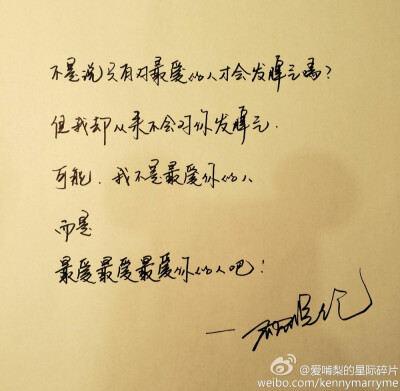 不是说只有对最爱的人才会发脾气嘛?
但我却从来不会对你发脾气.
可能.我不是最爱你的人
而是
最爱最爱最爱你的人吧!
@爱啃梨的星际碎片
weibo.com/kennymarryme